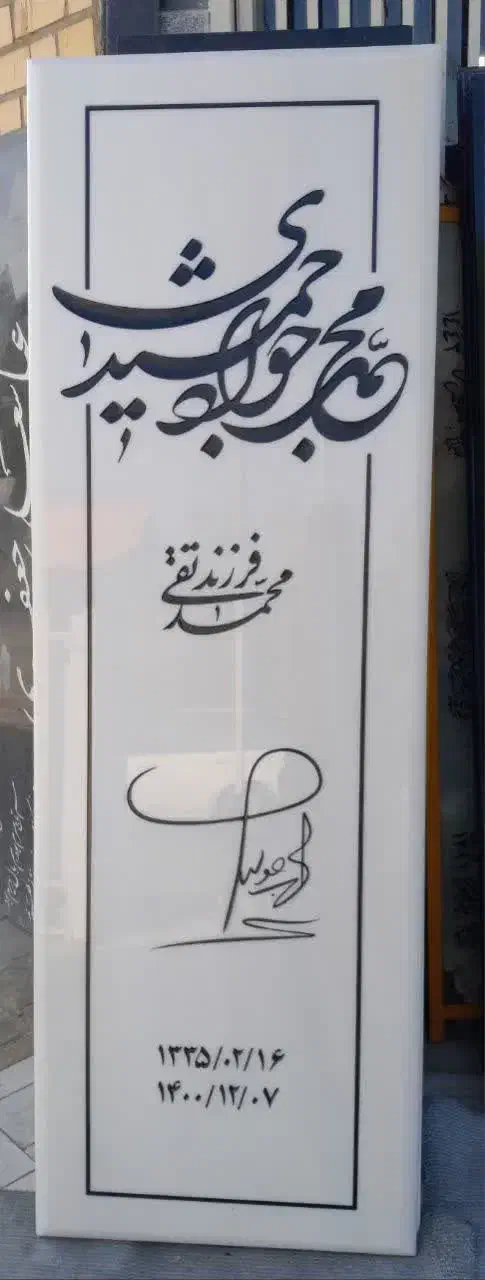 محمدجواد جمشیدی
فرزند محمدتقی
۱۳۳۵/۰۲/۱۶
۱۴۰۰/۱۲/۰۷